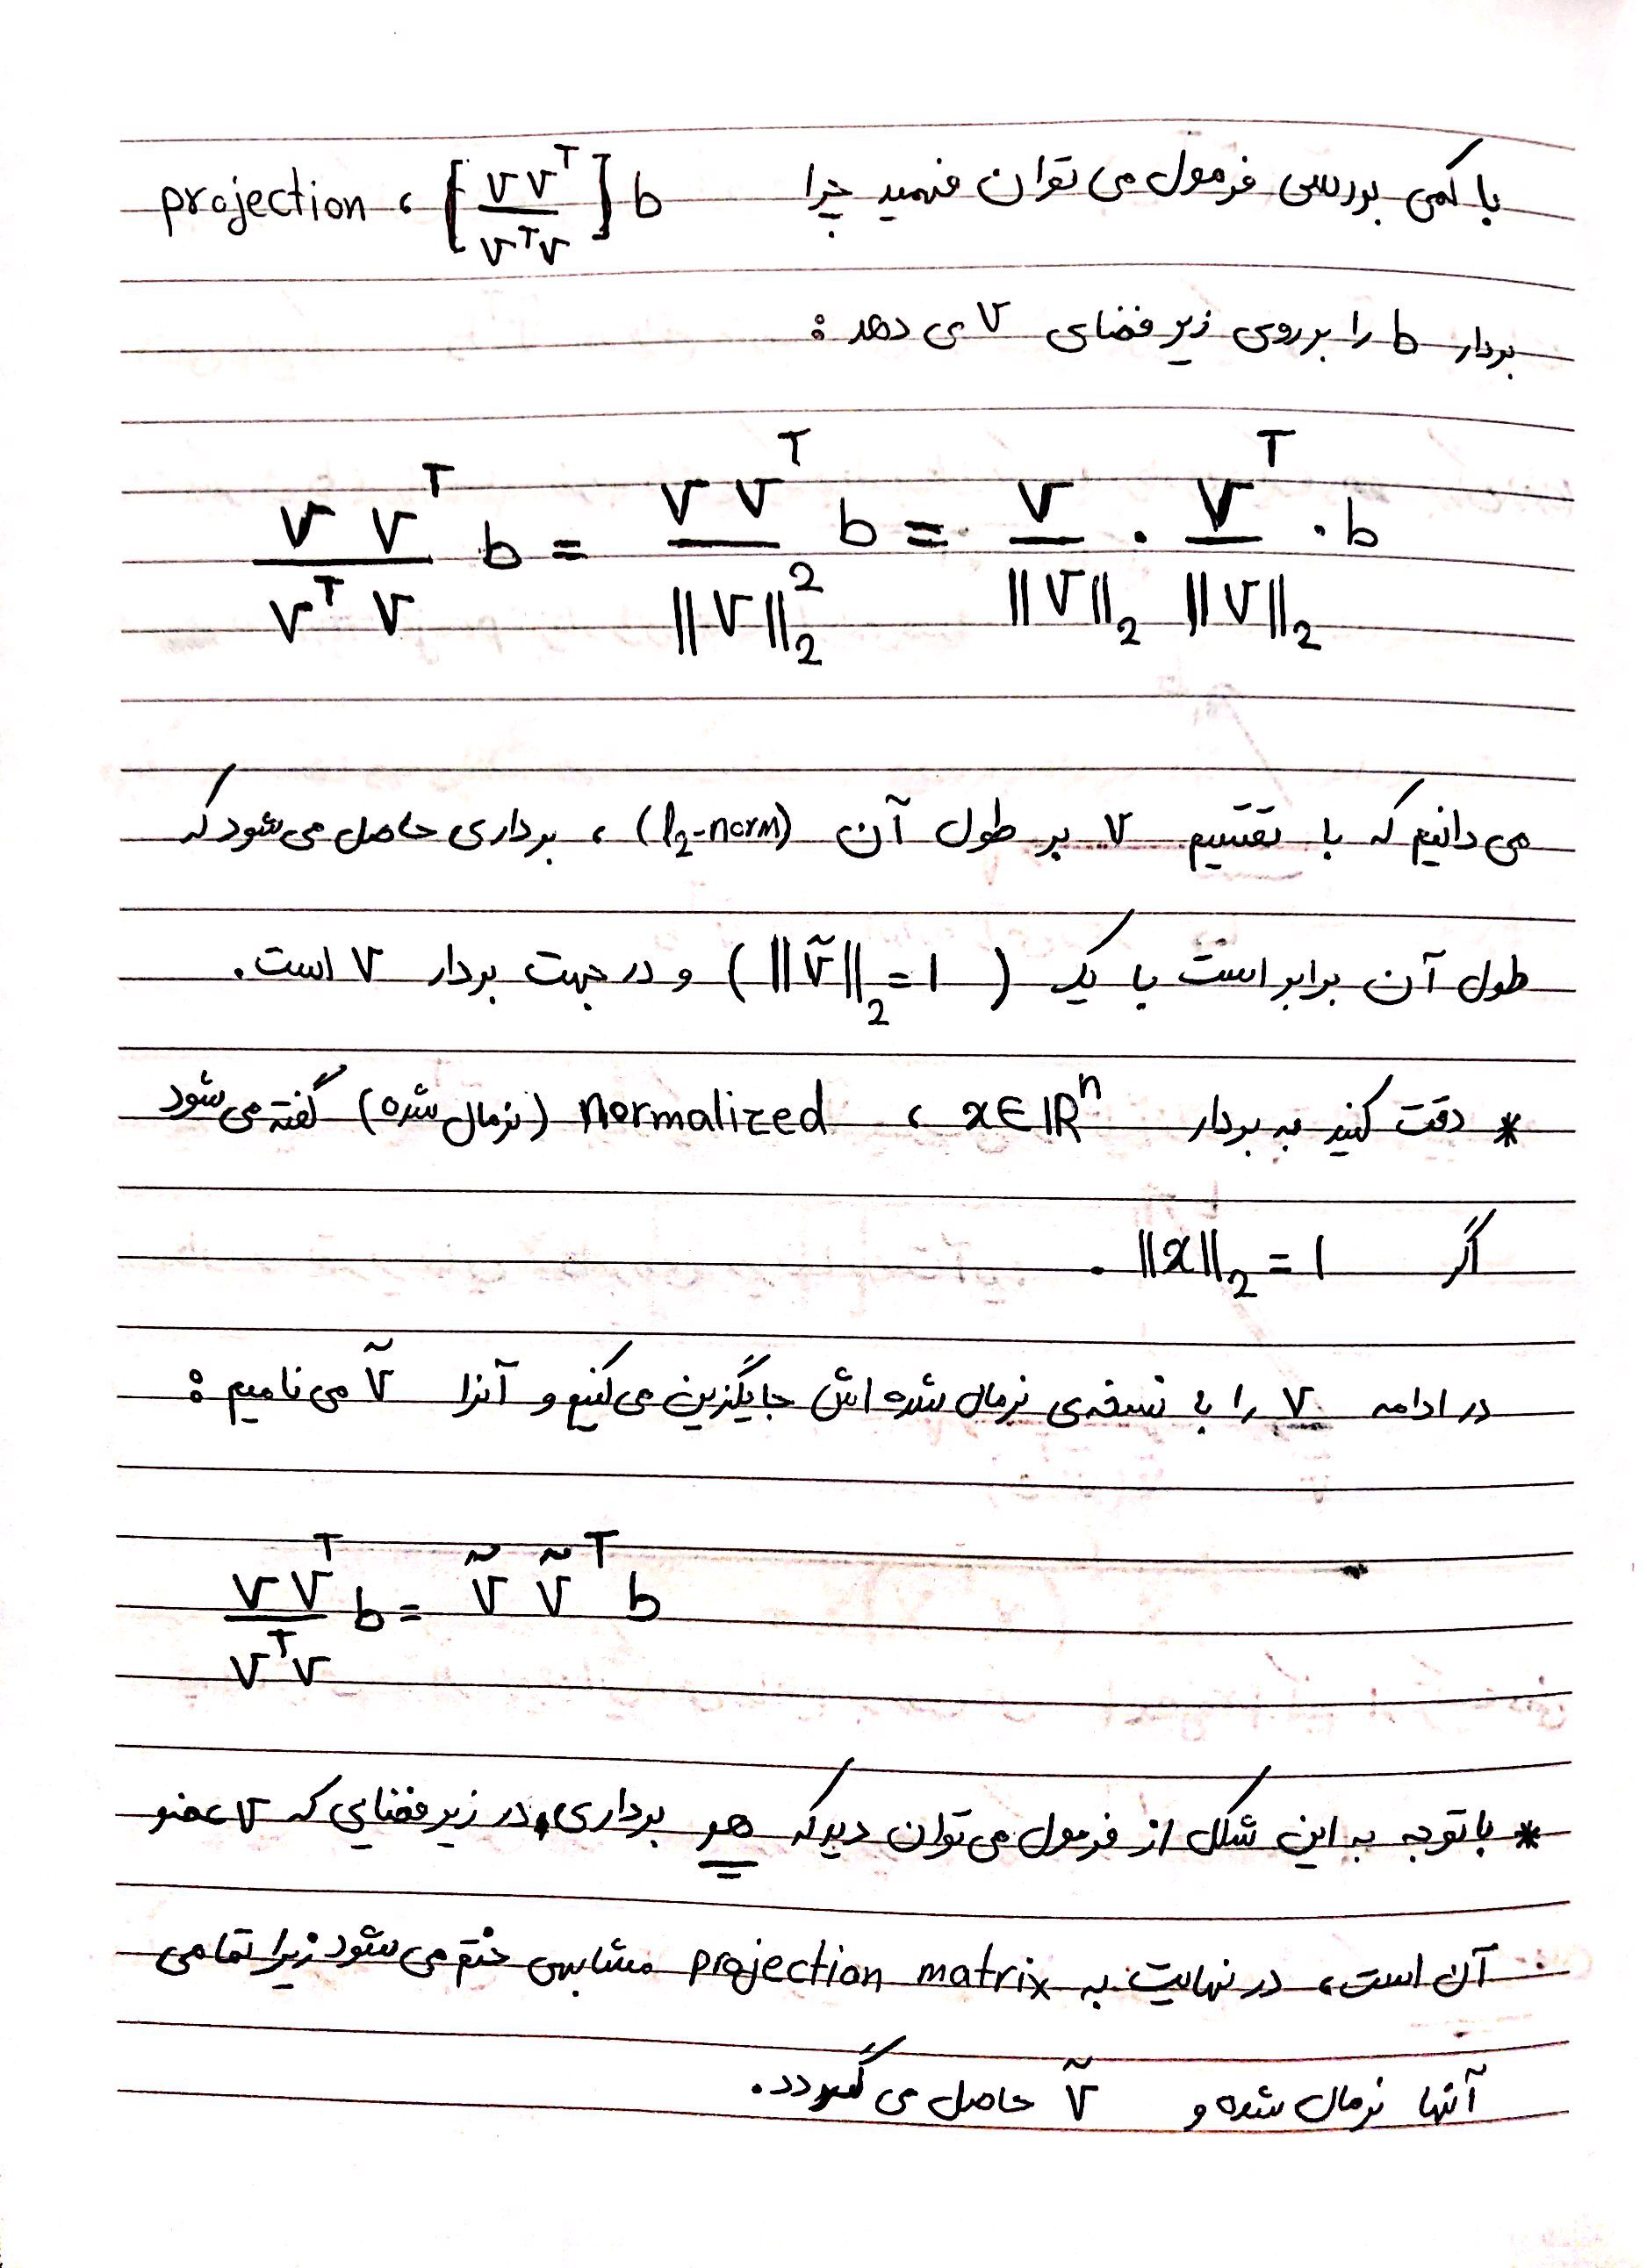 با کمی بررسی فرمول می توان فهمید چرا [v v^T / v^T v] b ، projection
بردار b را بر روی زیر فضای v ی دهد :
v v^T / v^T v b = v v^T / ||v||_2^2 b = v / ||v||_2 . v^T / ||v||_2 . b
می دانیم که با تقسیم v بر طول آن (l_2-norm) ، برداری حاصل می شود که
طول آن برابر است با یک (||ṽ||_2 = 1) و در جهت بردار v است.
* دقت کنید به بردار x ∈ R^n ، normalized (نرمال شده) گفته می شود
اگر ||x||_2 = 1 .
در ادامه v را با نسخه ی نرمال شده اش جایگزین می کنیم و آنرا ṽ می نامیم :
v v^T / v^T v b = ṽ ṽ^T b
* با توجه به این شکل از فرمول می توان دید که هر برداری در زیر فضایی که v عضو
آن است، در نهایت به projection matrix مشابهی ختم می شود زیرا تمامی
آنها نرمال شده و ṽ حاصل می گردد.